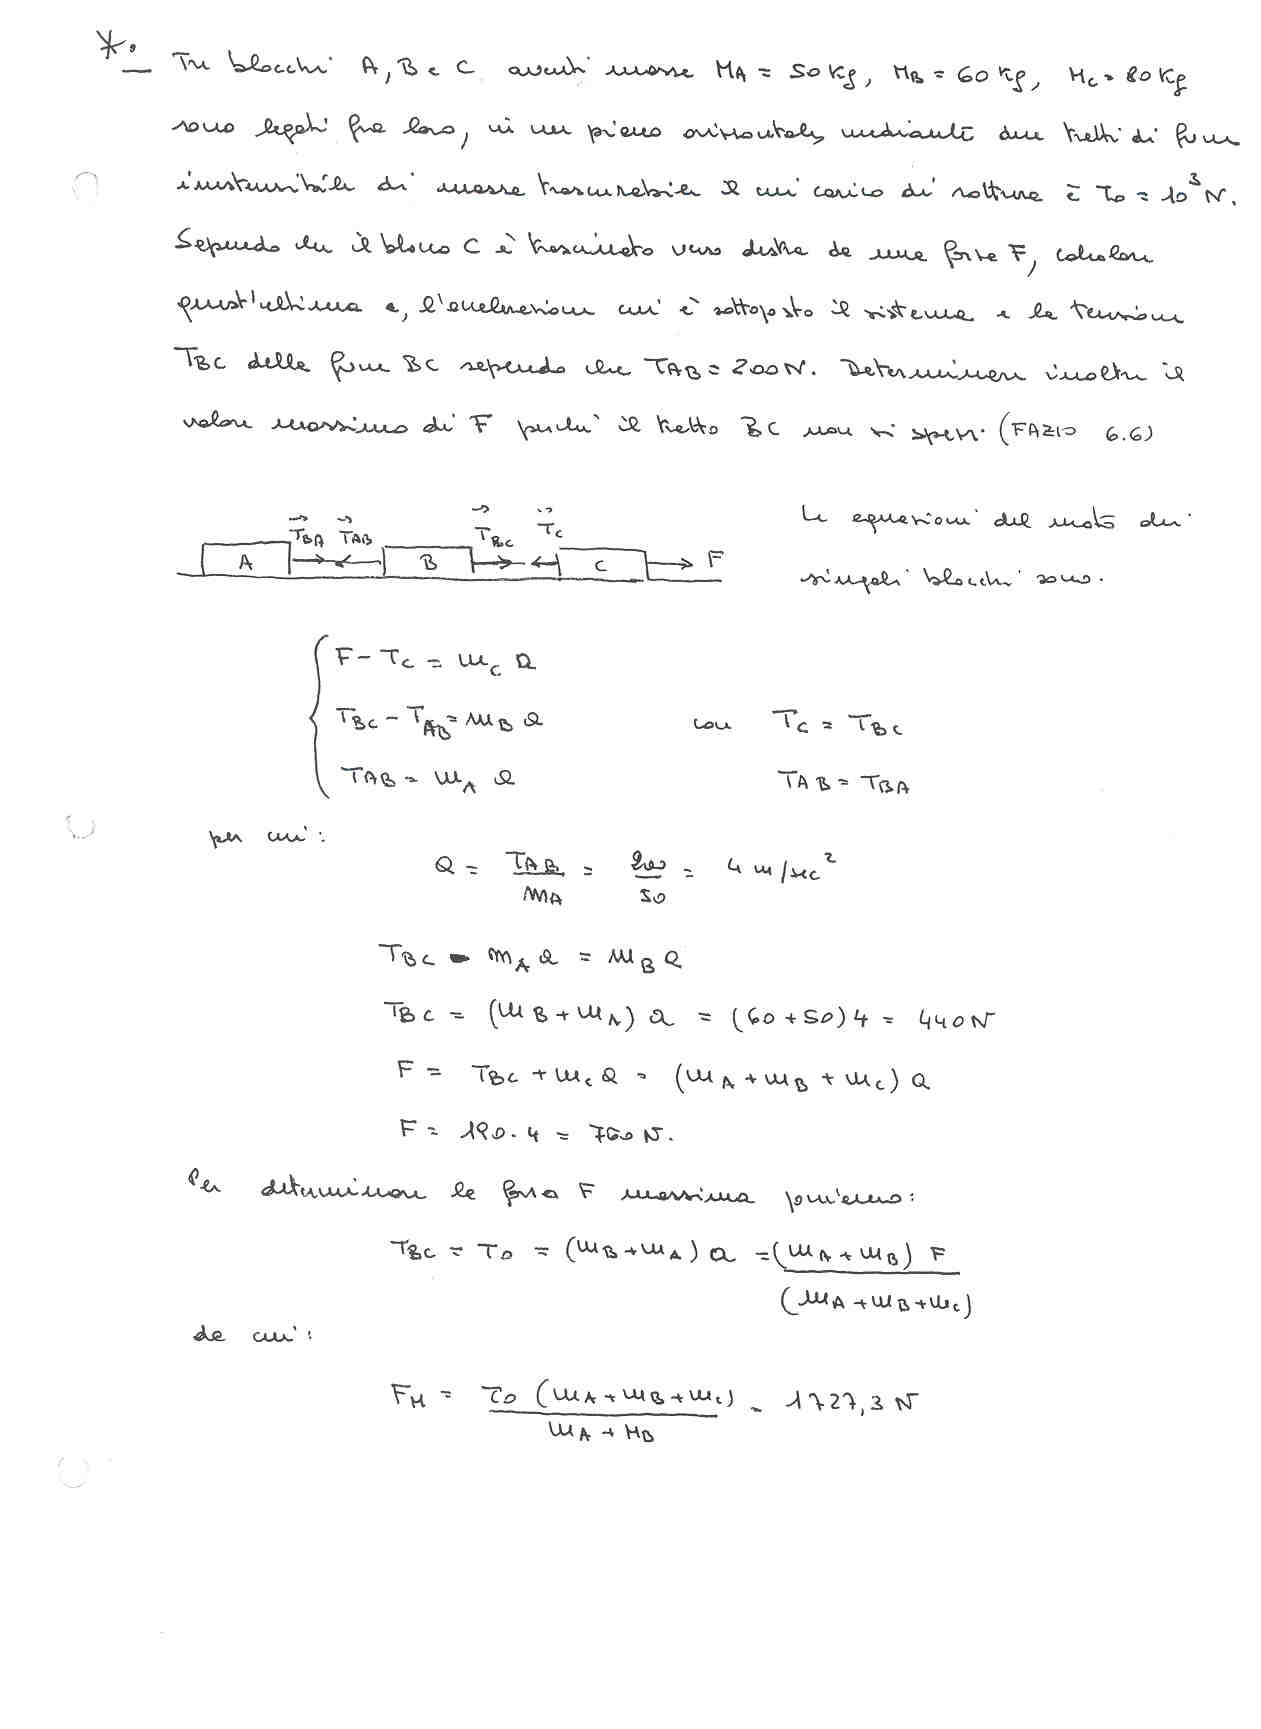 *. Tre blocchi A, B e C aventi masse MA = 50 Kg, MB = 60 Kg, MC = 80 Kg
sono legati fra loro, in un piano orizzontale, mediante due tratti di fune
inestensibile di massa trascurabile il cui carico di rottura è τ0 = 10³ N.
Sapendo che il blocco C è trascinato verso destra da una forza F, calcolare
quest'ultima e, l'accelerazione cui è sottoposto il sistema e la tensione
TBC della fune BC sapendo che TAB = 200 N. Determinare inoltre il
valore massimo di F perché il tratto BC non si spezzi. (FAZIO 6.6)
TBA TAB TBC TC
A B C F
Le equazioni del moto dei
singoli blocchi sono.
F - TC = mC a
TBC - TAB = mB a con TC = TBC
TAB = mA a TAB = TBA
per cui:
a = TAB/mA = 200/50 = 4 m/sec²
TBC - mA a = mB a
TBC = (mB + mA) a = (60 + 50) 4 = 440 N
F = TBC + mC a = (mA + mB + mC) a
F = 190 · 4 = 760 N.
Per determinare la forza F massima poniamo:
TBC = τ0 = (mB + mA) a = (mA + mB) F / (mA + mB + mC)
da cui:
FM = τ0 (mA + mB + mC) / mA + MB = 1727,3 N